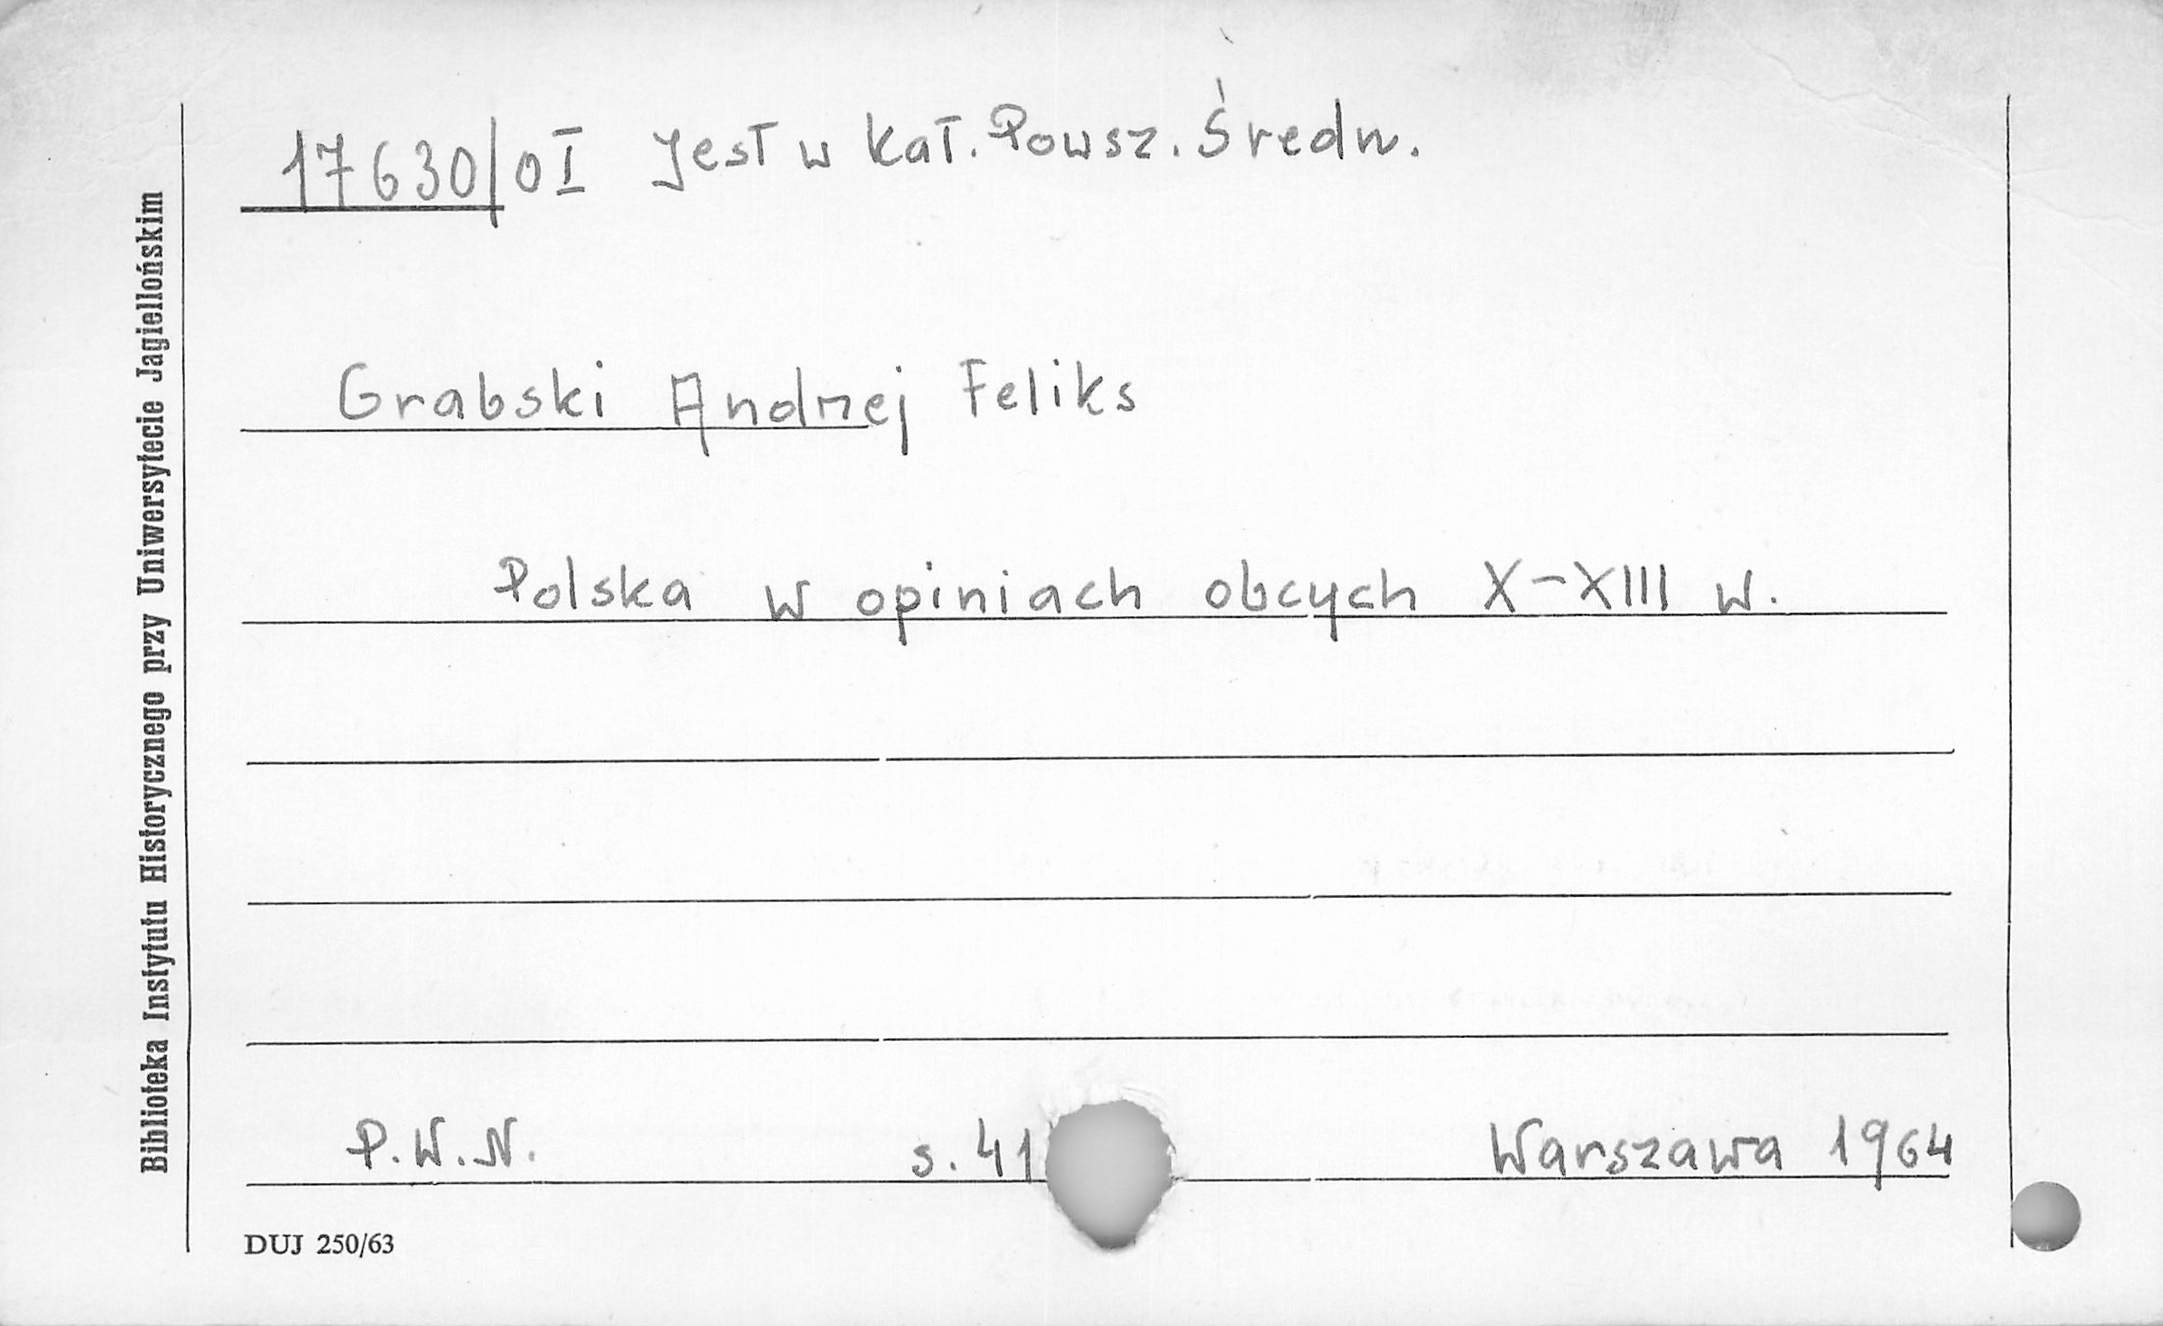 17630/OI Jest w Kat. Powsz. Średn.
Grabski Andrzej Feliks
Polska w opiniach obcych X-XIII w.
P.W.N. s. 41 Warszawa 1964
DUJ 250/63
Biblioteka Instytutu Historycznego przy Uniwersytecie Jagiellońskim